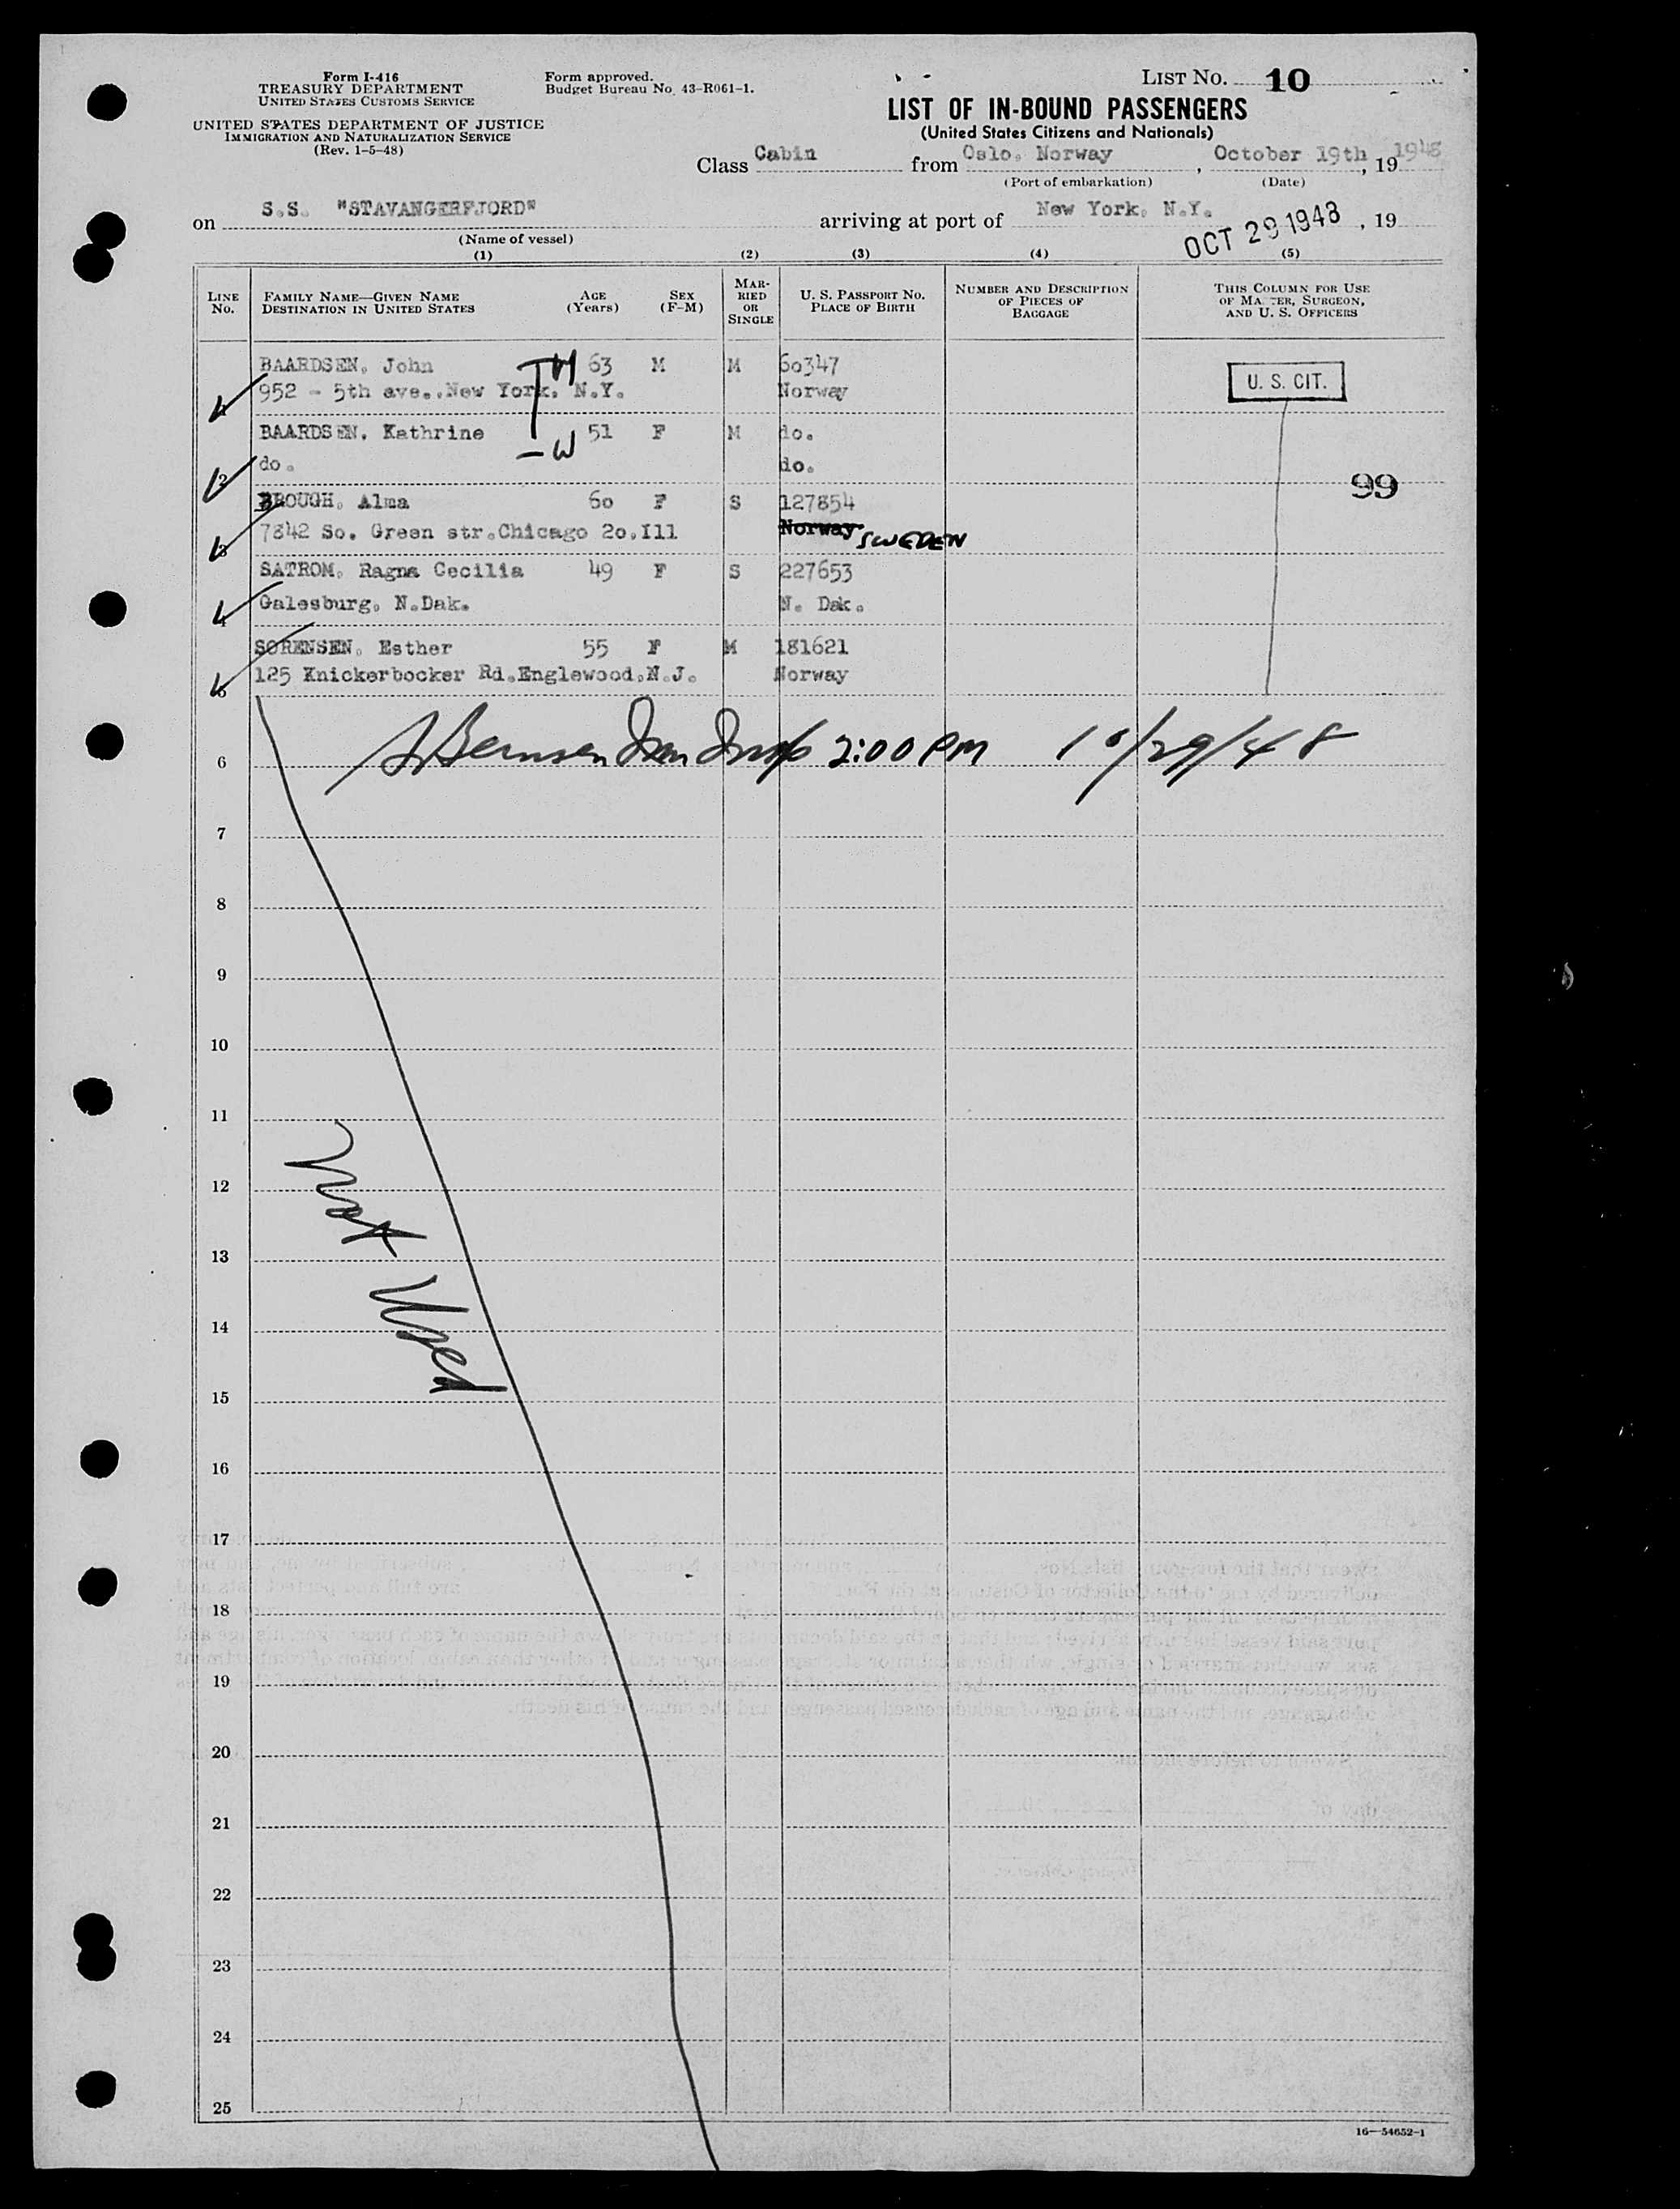 Form I-416
TREASURY DEPARTMENT
UNITED STATES CUSTOMS SERVICE
UNITED STATES DEPARTMENT OF JUSTICE
IMMIGRATION AND NATURALIZATION SERVICE
(Rev. 1-5-48)
Form approved.
Budget Bureau No. 43-R061-1.
LIST No. 10
LIST OF IN-BOUND PASSENGERS
(United States Citizens and Nationals)
Class Cabin from Oslo, Norway, October 19th, 19 1948
(Port of embarkation) (Date)
on S.S. "STAVANGERFJORD" arriving at port of New York, N.Y. OCT 29 1948, 19
(Name of vessel)
(1) (2) (3) (4) (5)
LINE No. FAMILY NAME—GIVEN NAME DESTINATION IN UNITED STATES AGE (Years) SEX (F-M) MARRIED OR SINGLE U. S. PASSPORT No. PLACE OF BIRTH NUMBER AND DESCRIPTION OF PIECES OF BAGGAGE THIS COLUMN FOR USE OF MASTER, SURGEON, AND U. S. OFFICERS
BAARDSEN, John H 63 M M 60347
1 952 - 5th ave.,New York. N.Y. Norway U. S. CIT.
BAARDSEN, Kathrine W 51 F M do.
2 do. do.
99
BROUGH, Alma 60 F S 127854
3 7842 So. Green str.Chicago 20,Ill Norway SWEDEN
SATROM, Ragna Cecilia 49 F S 227653
4 Galesburg, N.Dak. N. Dak.
SORENSEN, Esther 55 F M 181621
5 125 Knickerbocker Rd.Englewood,N.J. Norway
6 2:00 PM 10/29/48
7
8
9
10
11
12
13
14
15
16
17
18
19
20
21
22
23
24
25
Not Used
16—54652-1